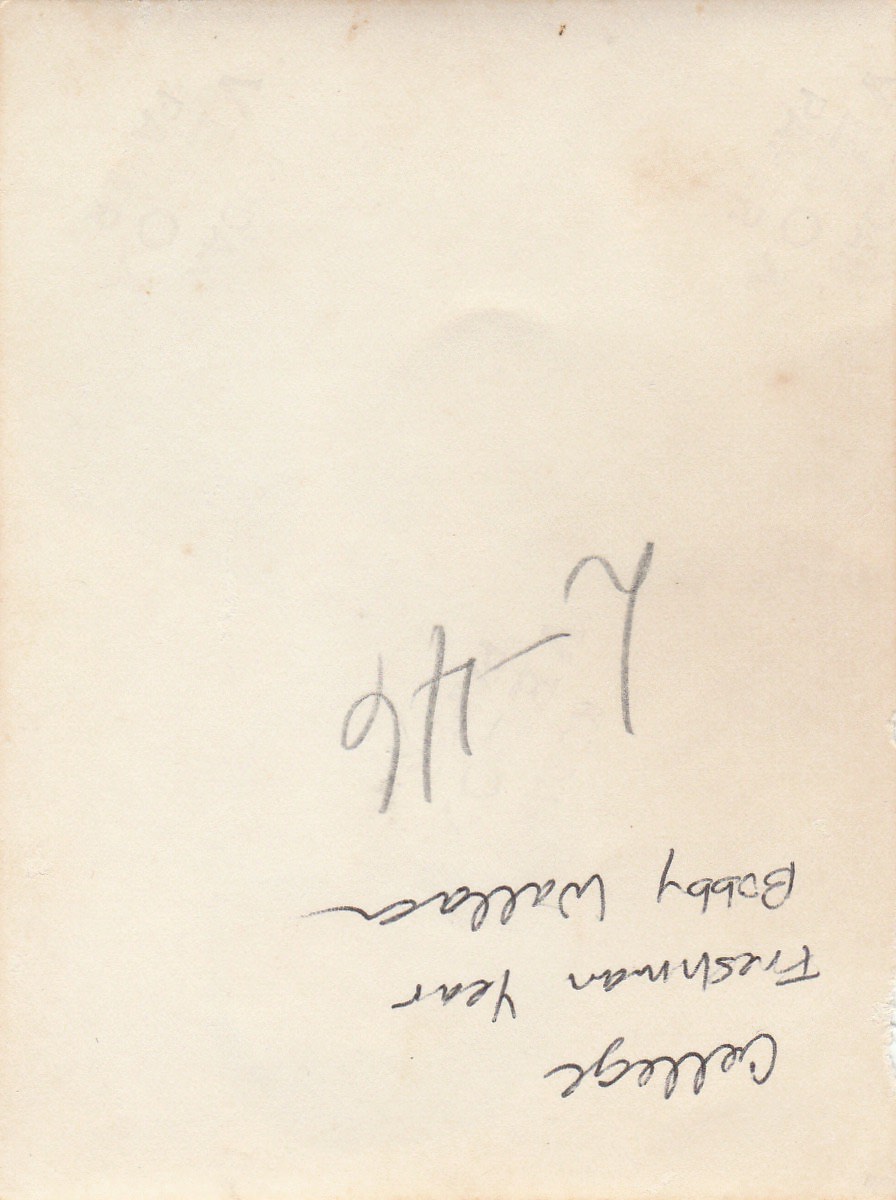 College
Freshman Year
Bobby Wallace
L-46